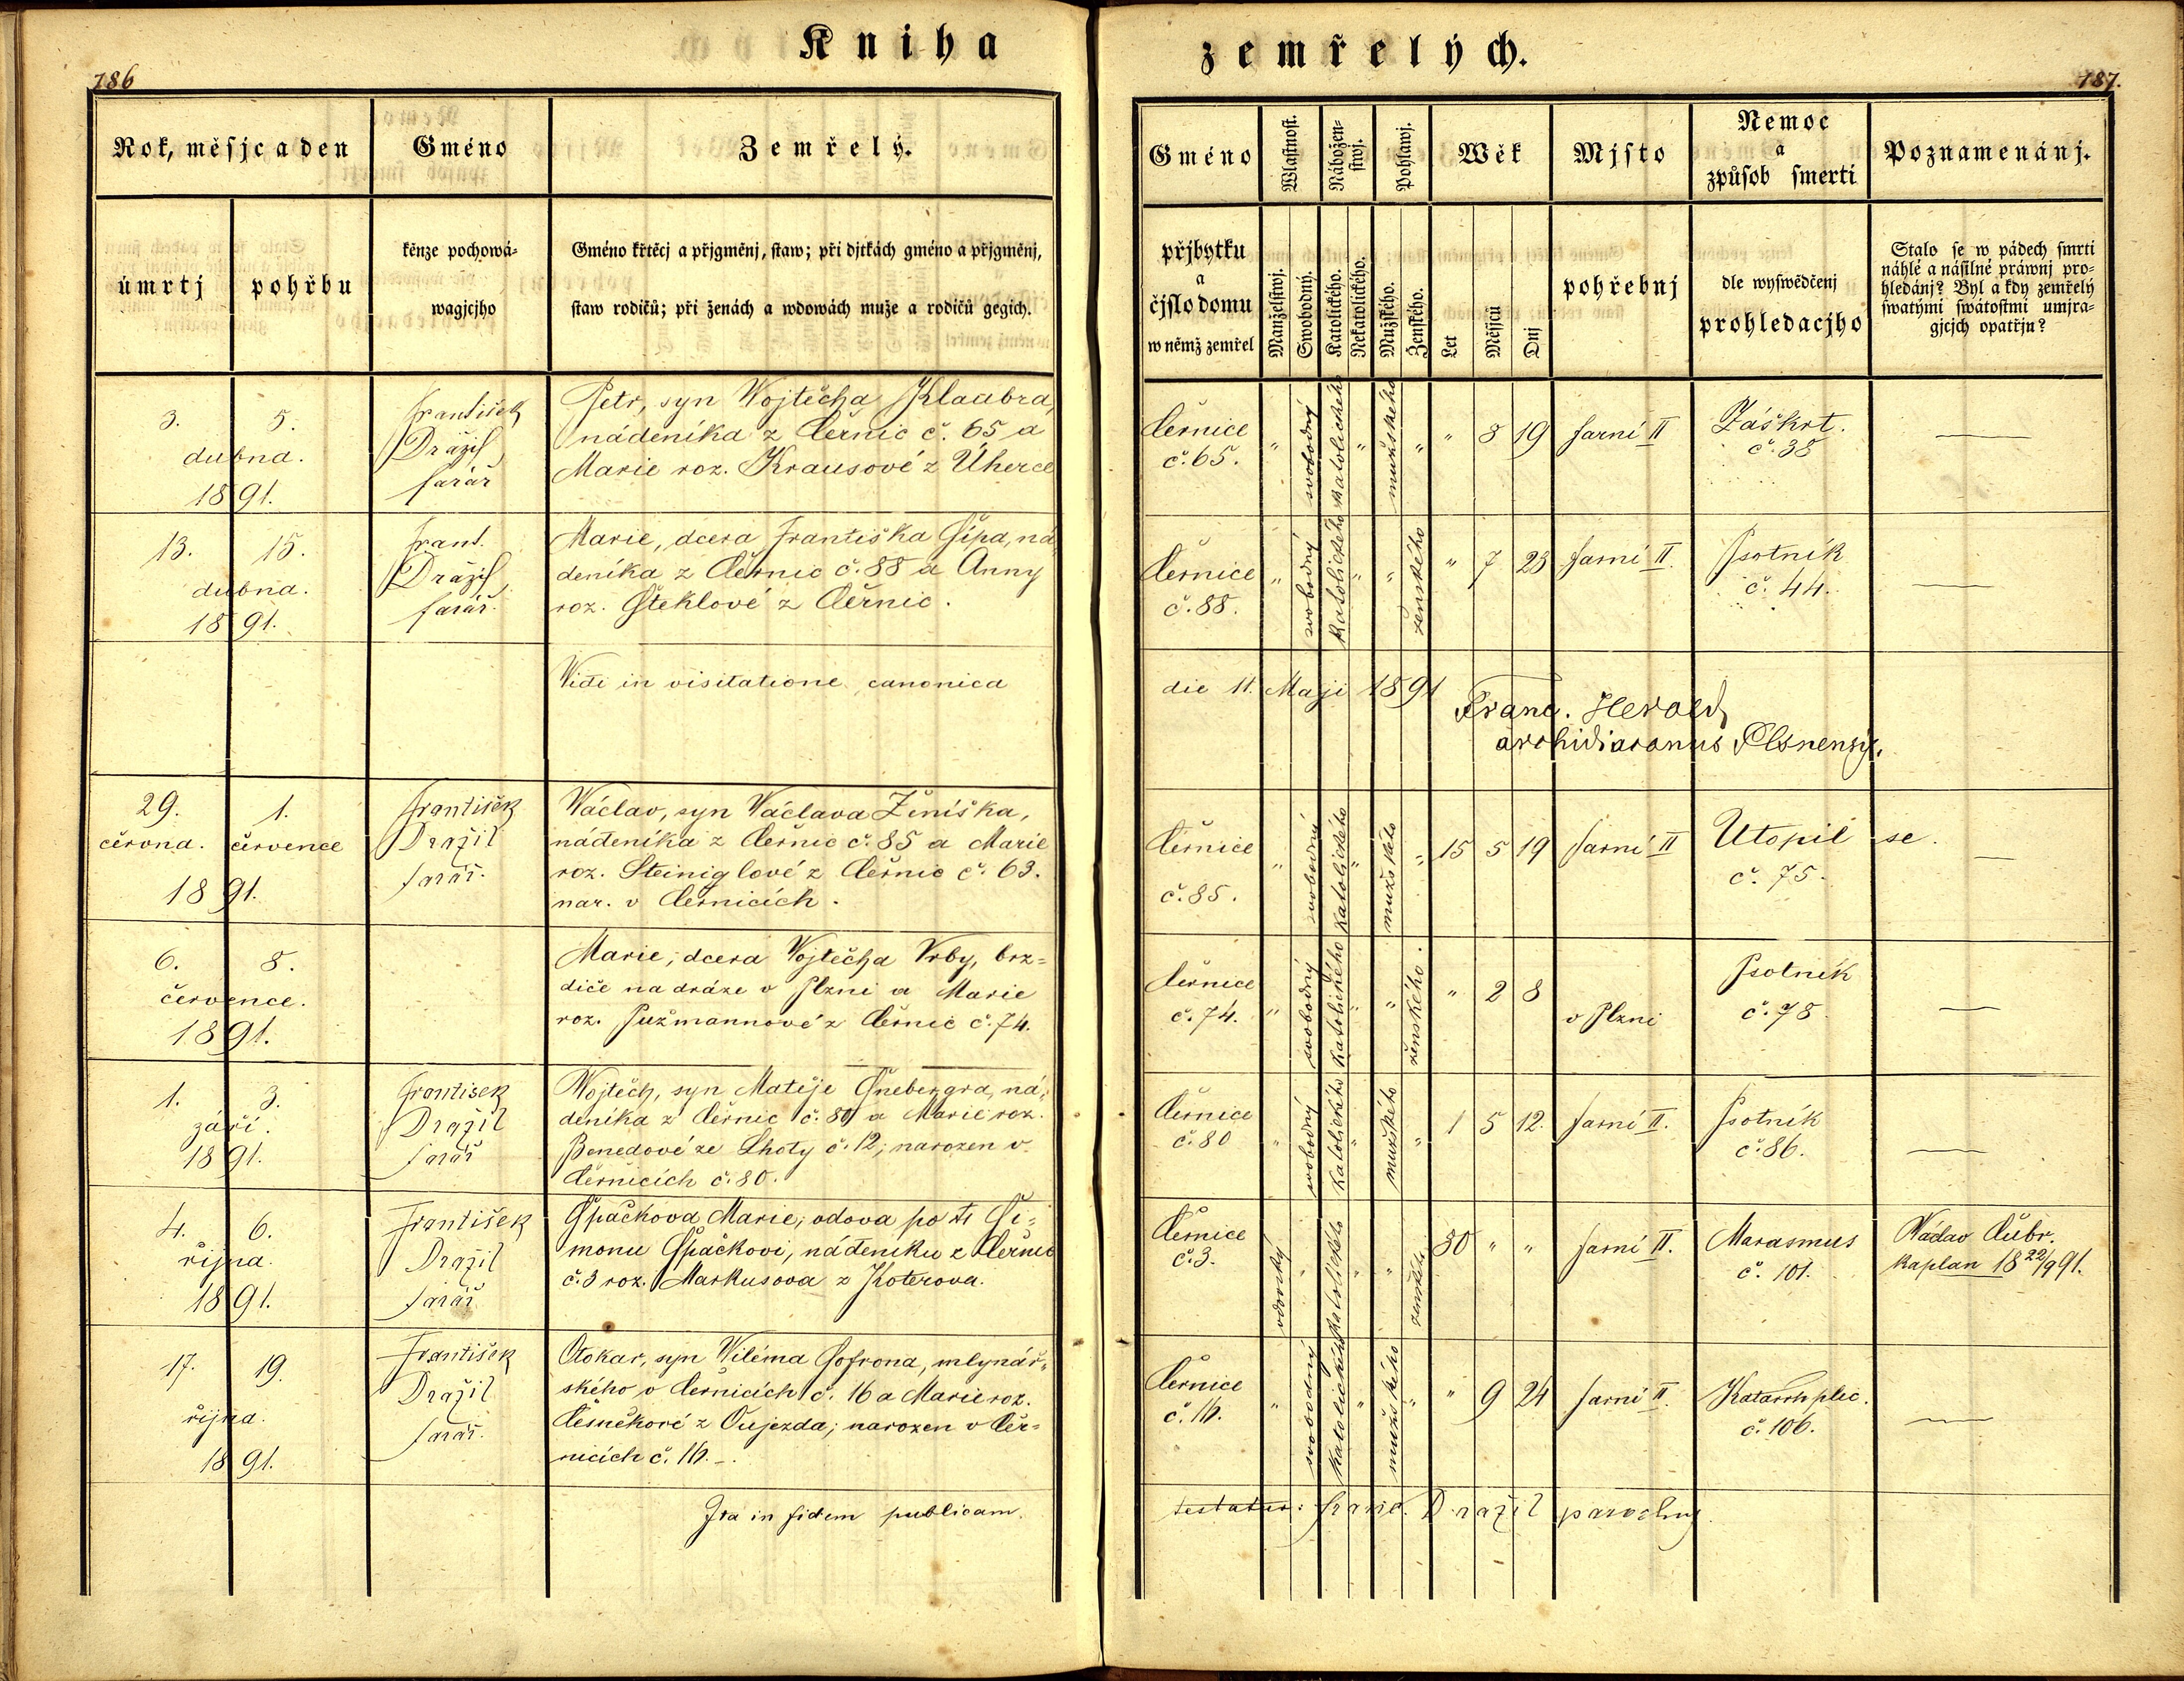 Kniha
zemřelých.
186
187.
Rok, měsjc a den
Gméno
Zemřelý.
úmrtj
pohřbu
kěnze pochowá-
wagjcjho
Gméno křtěcj a přjgměnj, staw; při djtkách gméno a přjgměnj,
staw rodičů; při ženách a wdowách muže a rodičů gegich.
Gméno
přjbytku
a
čjslo domu
w němž zemřel
Wlastnost.
Manželstwj.
Swobodný.
Nábožen-
stwj.
Katolického.
Nekatolického.
Pohlawj.
Mužského.
Ženského.
Wěk
Let
Měsjců
Dnj
Mjsto
pohřebnj
Nemoc
a
způsob smerti
dle wyswědčenj
prohledacjho
Poznamenánj.
Stalo se w pádech smrti
náhlé a násilné práwnj pro-
hledánj? Byl a kdy zemřelý
swatými swátostmi umjra-
gjcjch opatřjn?
3. 5.
dubna.
1891.
František
Dražil
farář
Petr, syn Wojtěcha Klaubra,
nádeníka z Černic č. 65 a
Marie roz. Krausové z Úherce
Černice
č. 65.
" svobodný katolického " mužského " " 8 19 farní II
Záškrt.
č. 38
13. 15.
dubna.
1891.
Frant.
Dražil
farář.
Marie, dcera Františka Šípa, ná-
deníka z Černic č. 88 a Anny
roz. Šteklové z Černic.
Černice
č. 88.
" svobodný katolického " " ženského " 7 23 farní II.
Psotník
č. 44.
Vidi in visitatione canonica
die 11. Maji 1891
Franc. Herold
archidiaconus Plsnensis.
29. 1.
června. července
1891.
František
Dražil
farář.
Václav, syn Václava Ženíška,
nádeníka z Černic č. 85 a Marie
roz. Steiniglové z Černic č. 63.
nar. v Černicích.
Černice
č. 85.
" svobodný katolického " mužského " 15 5 19 farní II
Utopil se.
č. 75.
6. 8.
července.
1891.
Marie, dcera Vojtěcha Vrby, brz-
diče na dráze v Plzni a Marie
roz. Pužmannové z Černic č. 74.
Černice
č. 74.
" svobodný katolického " " ženského. " 2 8
v Plzni
Psotník
č. 78.
1. 3.
září.
1891.
František
Dražil
farář
Vojtěch, syn Matěje Šnebergra, ná-
deníka z Černic č. 80 a Marie roz.
Benedové ze Lhoty č. 12; narozen v
Černicích č. 80.
Černice
č. 80
" svobodný katolického " mužského " 1 5 12. farní II.
Psotník
č. 86.
4. 6.
října.
1891.
František
Dražil
farář
Špačkova Marie, vdova po Ši-
monu Špačkovi, nádeníku z Černic
č. 3 roz. Markusova z Koterova.
Černice
č. 3.
vdovský " katolického " " ženského 80 " " farní II.
Marasmus
č. 101.
Václav Čubr.
kaplan 18 22/9 91.
17. 19.
října.
1891.
František
Dražil
farář.
Otokar, syn Viléma Sofrona, mlynář-
ského v Černicích č. 16 a Marie roz.
z Oujezda; narozen v Čer-
nicích č. 16.
Černice
č. 16.
" svobodný katolického " mužského " " 9 24 farní II.
Katarrh plic.
č. 106.
Ita in fidem publicam.
testatur: Franc. Dražil parochus.